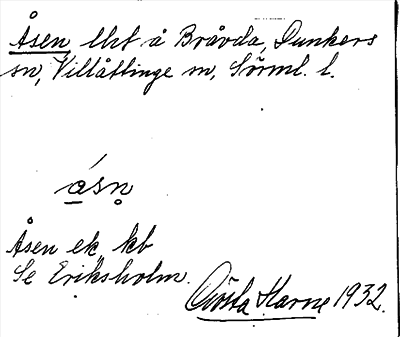 Åsen lht å Bråvda, Dunkers
sn, Villåttinge m, Sörml. l.
ásn̥
Åsen ek kb
Se Eriksholm.
Gösta Harne 1932.